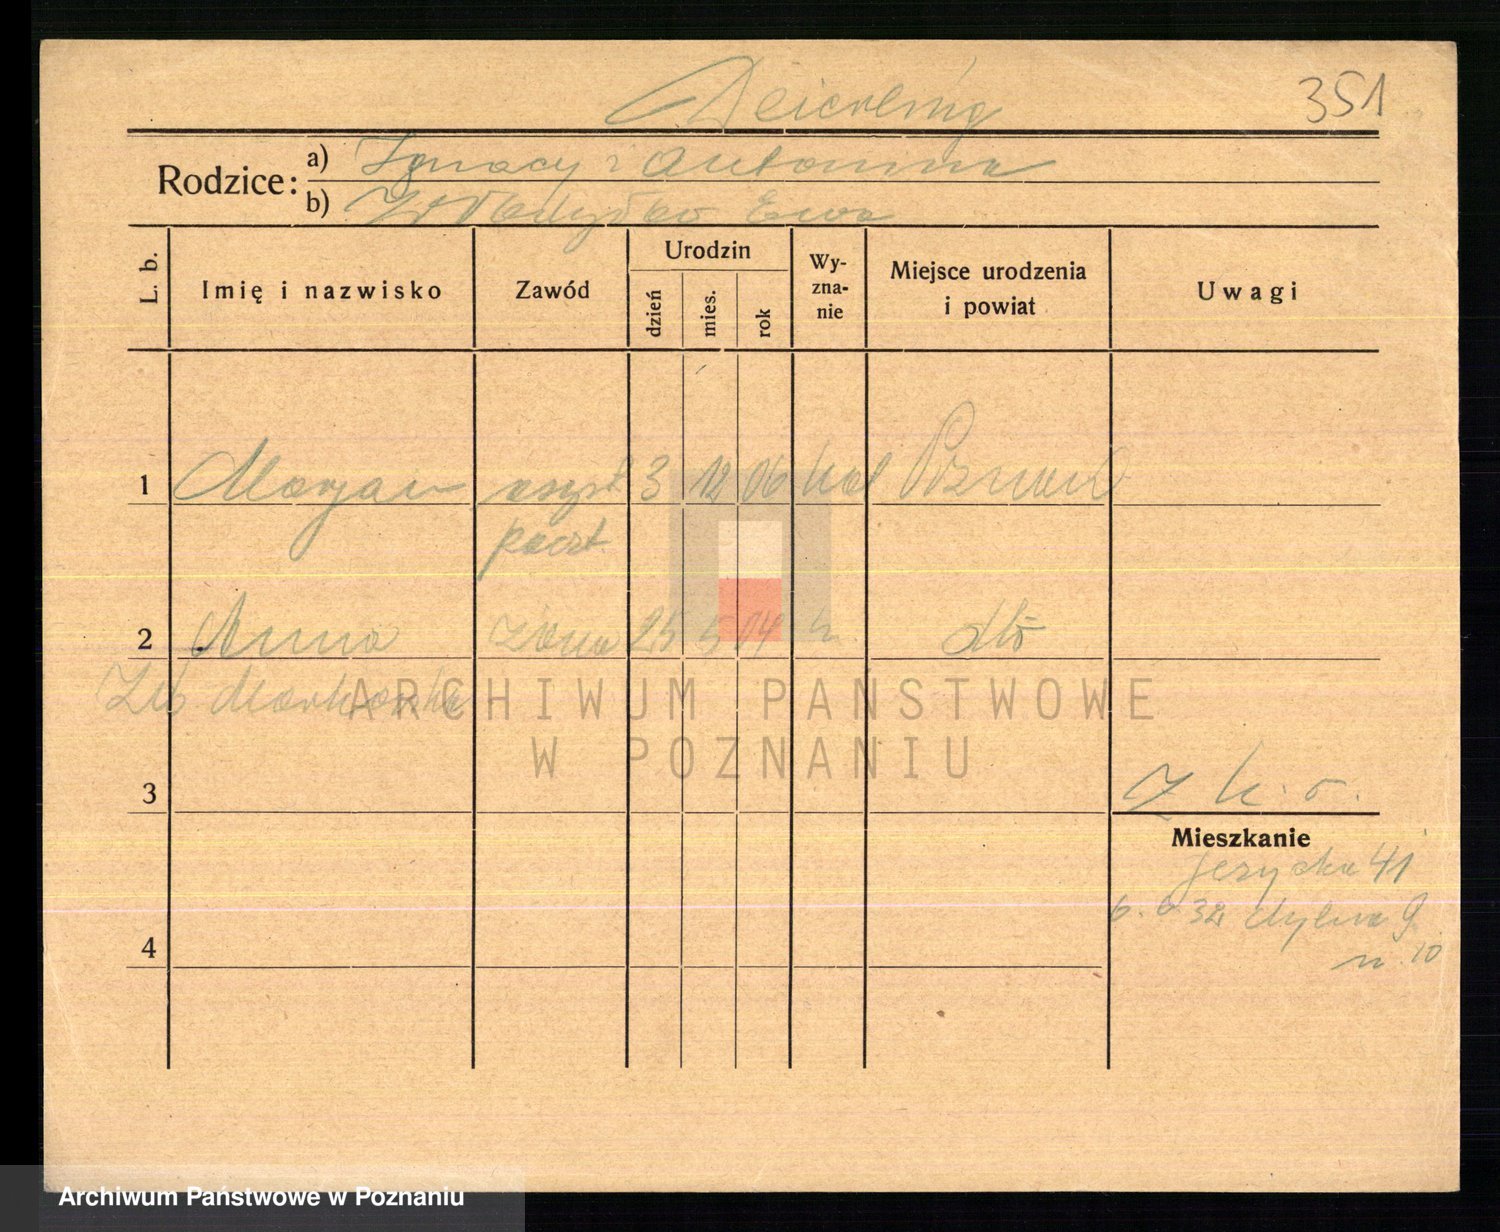 Deierling
351
Rodzice:
a) Ignacy i Antonina
b) Władysław Ewa
L. b.
Imię i nazwisko
Zawód
Urodzin
dzień
mies.
rok
Wy-
zna-
nie
Miejsce urodzenia
i powiat
Uwagi
1 Marjan asyst 3 12 06 kat Poznań
poczt
2 Anna żona 25 5 14 k. dto
Markowska
3
Z k. o.
Mieszkanie
Jeżycka 41
32 9
4
m. 10
ARCHIWUM PAŃSTWOWE
W POZNANIU
Archiwum Państwowe w Poznaniu